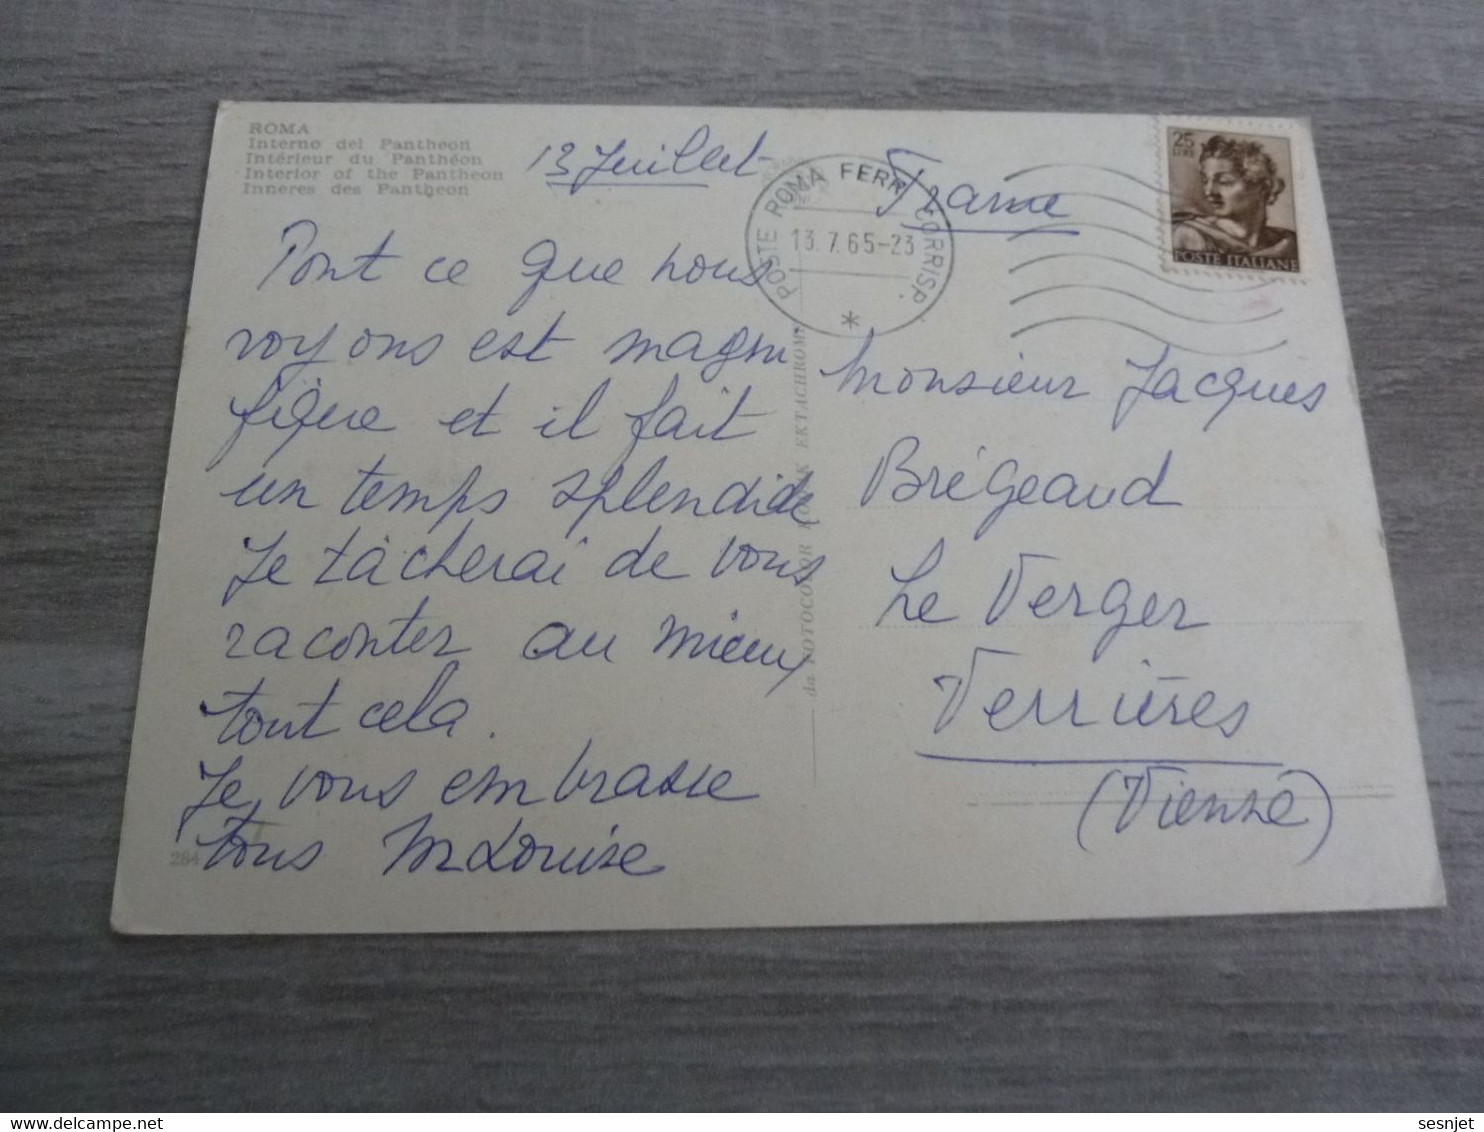 ROMA
Interno del Pantheon
Intérieur du Panthéon
Interior of the Pantheon
Inneres des Pantheon
13 Juillet
Tout ce que nous
voyons est magni
fique et il fait
un temps splendide
Je tâcherai de vous
raconter au mieux
tout cela.
Je vous embrasse
tous M Louise
284
POSTE ROMA FERR. CORRISP.
13.7.65-23
*
25
LIRE
POSTE ITALIANE
France
Monsieur Jacques
Brégeaud
Le Verger
Verrières
(Vienne)
da FOTOCOLOR KODAK EKTACHROME
sesnjet
delcampe.net